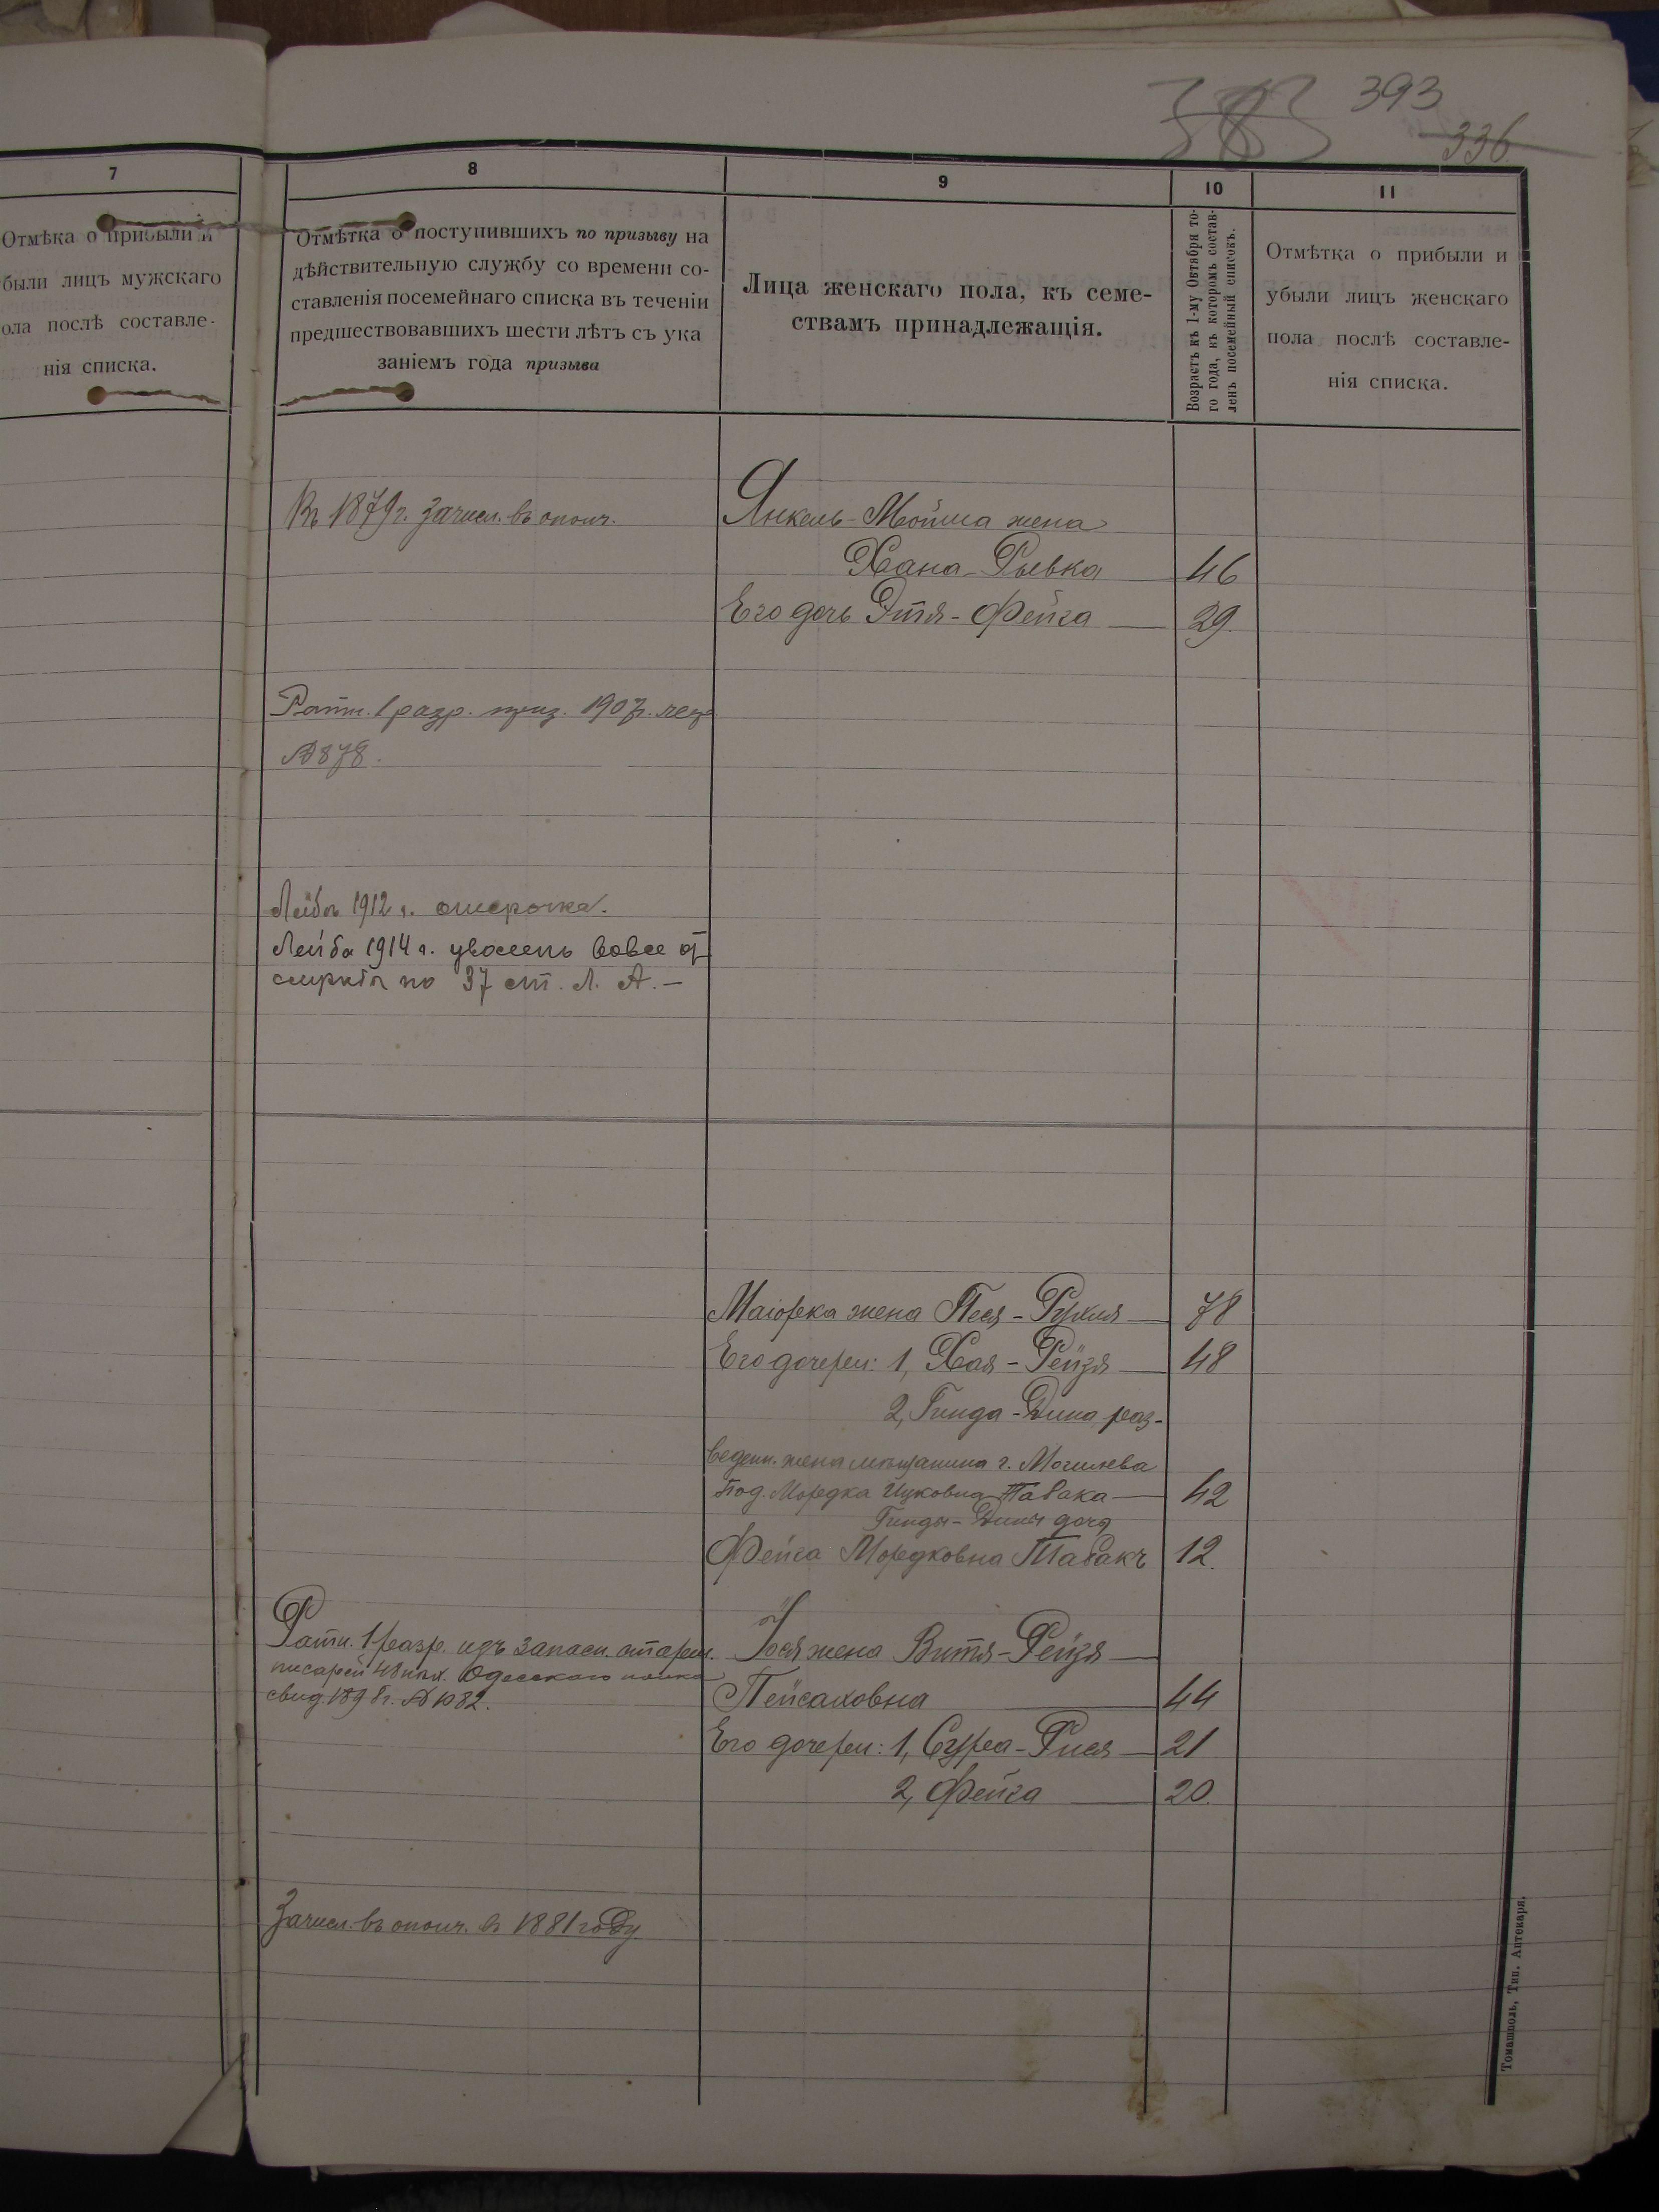 383 393
336
7
Отмѣка о прибыли и
были лицъ мужскаго
ола послѣ составле-
нія списка.
8
Отмѣтка о поступившихъ по призыву на
дѣйствительную службу со времени со-
ставленія посемейнаго списка въ теченіи
предшествовавшихъ шести лѣтъ съ ука
заніемъ года призыва
9
Лица женскаго пола, къ семе-
ствамъ принадлежащія.
10
Возрастъ къ 1-му Октября то-
го года, въ которомъ состав-
ленъ посемейный списокъ.
11
Отмѣтка о прибыли и
убыли лицъ женскаго
пола послѣ составле-
нія списка.
Въ 1879 г. зачисл. въ ополч.
Янкель-Мойша жена
Хана-Рывка 46
Его дочь Этя-Фейга 29.
Ратн. 1 разр. приз. 1907 г.
№ 878.
Лейба 1912 г. отсрочка.
Лейба 1914 г. уволенъ вовсе от
по 37 ст. Л. А. —
Маіорка жена Песя-Рухля 78
Его дочери: 1, Хая-Рейзя 48
2, Гинда-Дина, раз-
веденн. жена мѣщанина г. Могилева
Под. Мордка Ицковича Табака 42
Гинды-Дины дочь
Фейга Мордковна Табакъ 12.
Ратн. 1 разр. изъ запасн. старш.
писарей 48 пѣх. Одесскаго полка
свид. 1898 г. № 1082.
Іося жена Витя-Рейзя
Пейсаховна 44
Его дочери: 1, Сура-Рися 21
2, Фейга 20.
Зачисл. въ ополч. въ 1881 году
Томашполь, Тип. Аптекаря.